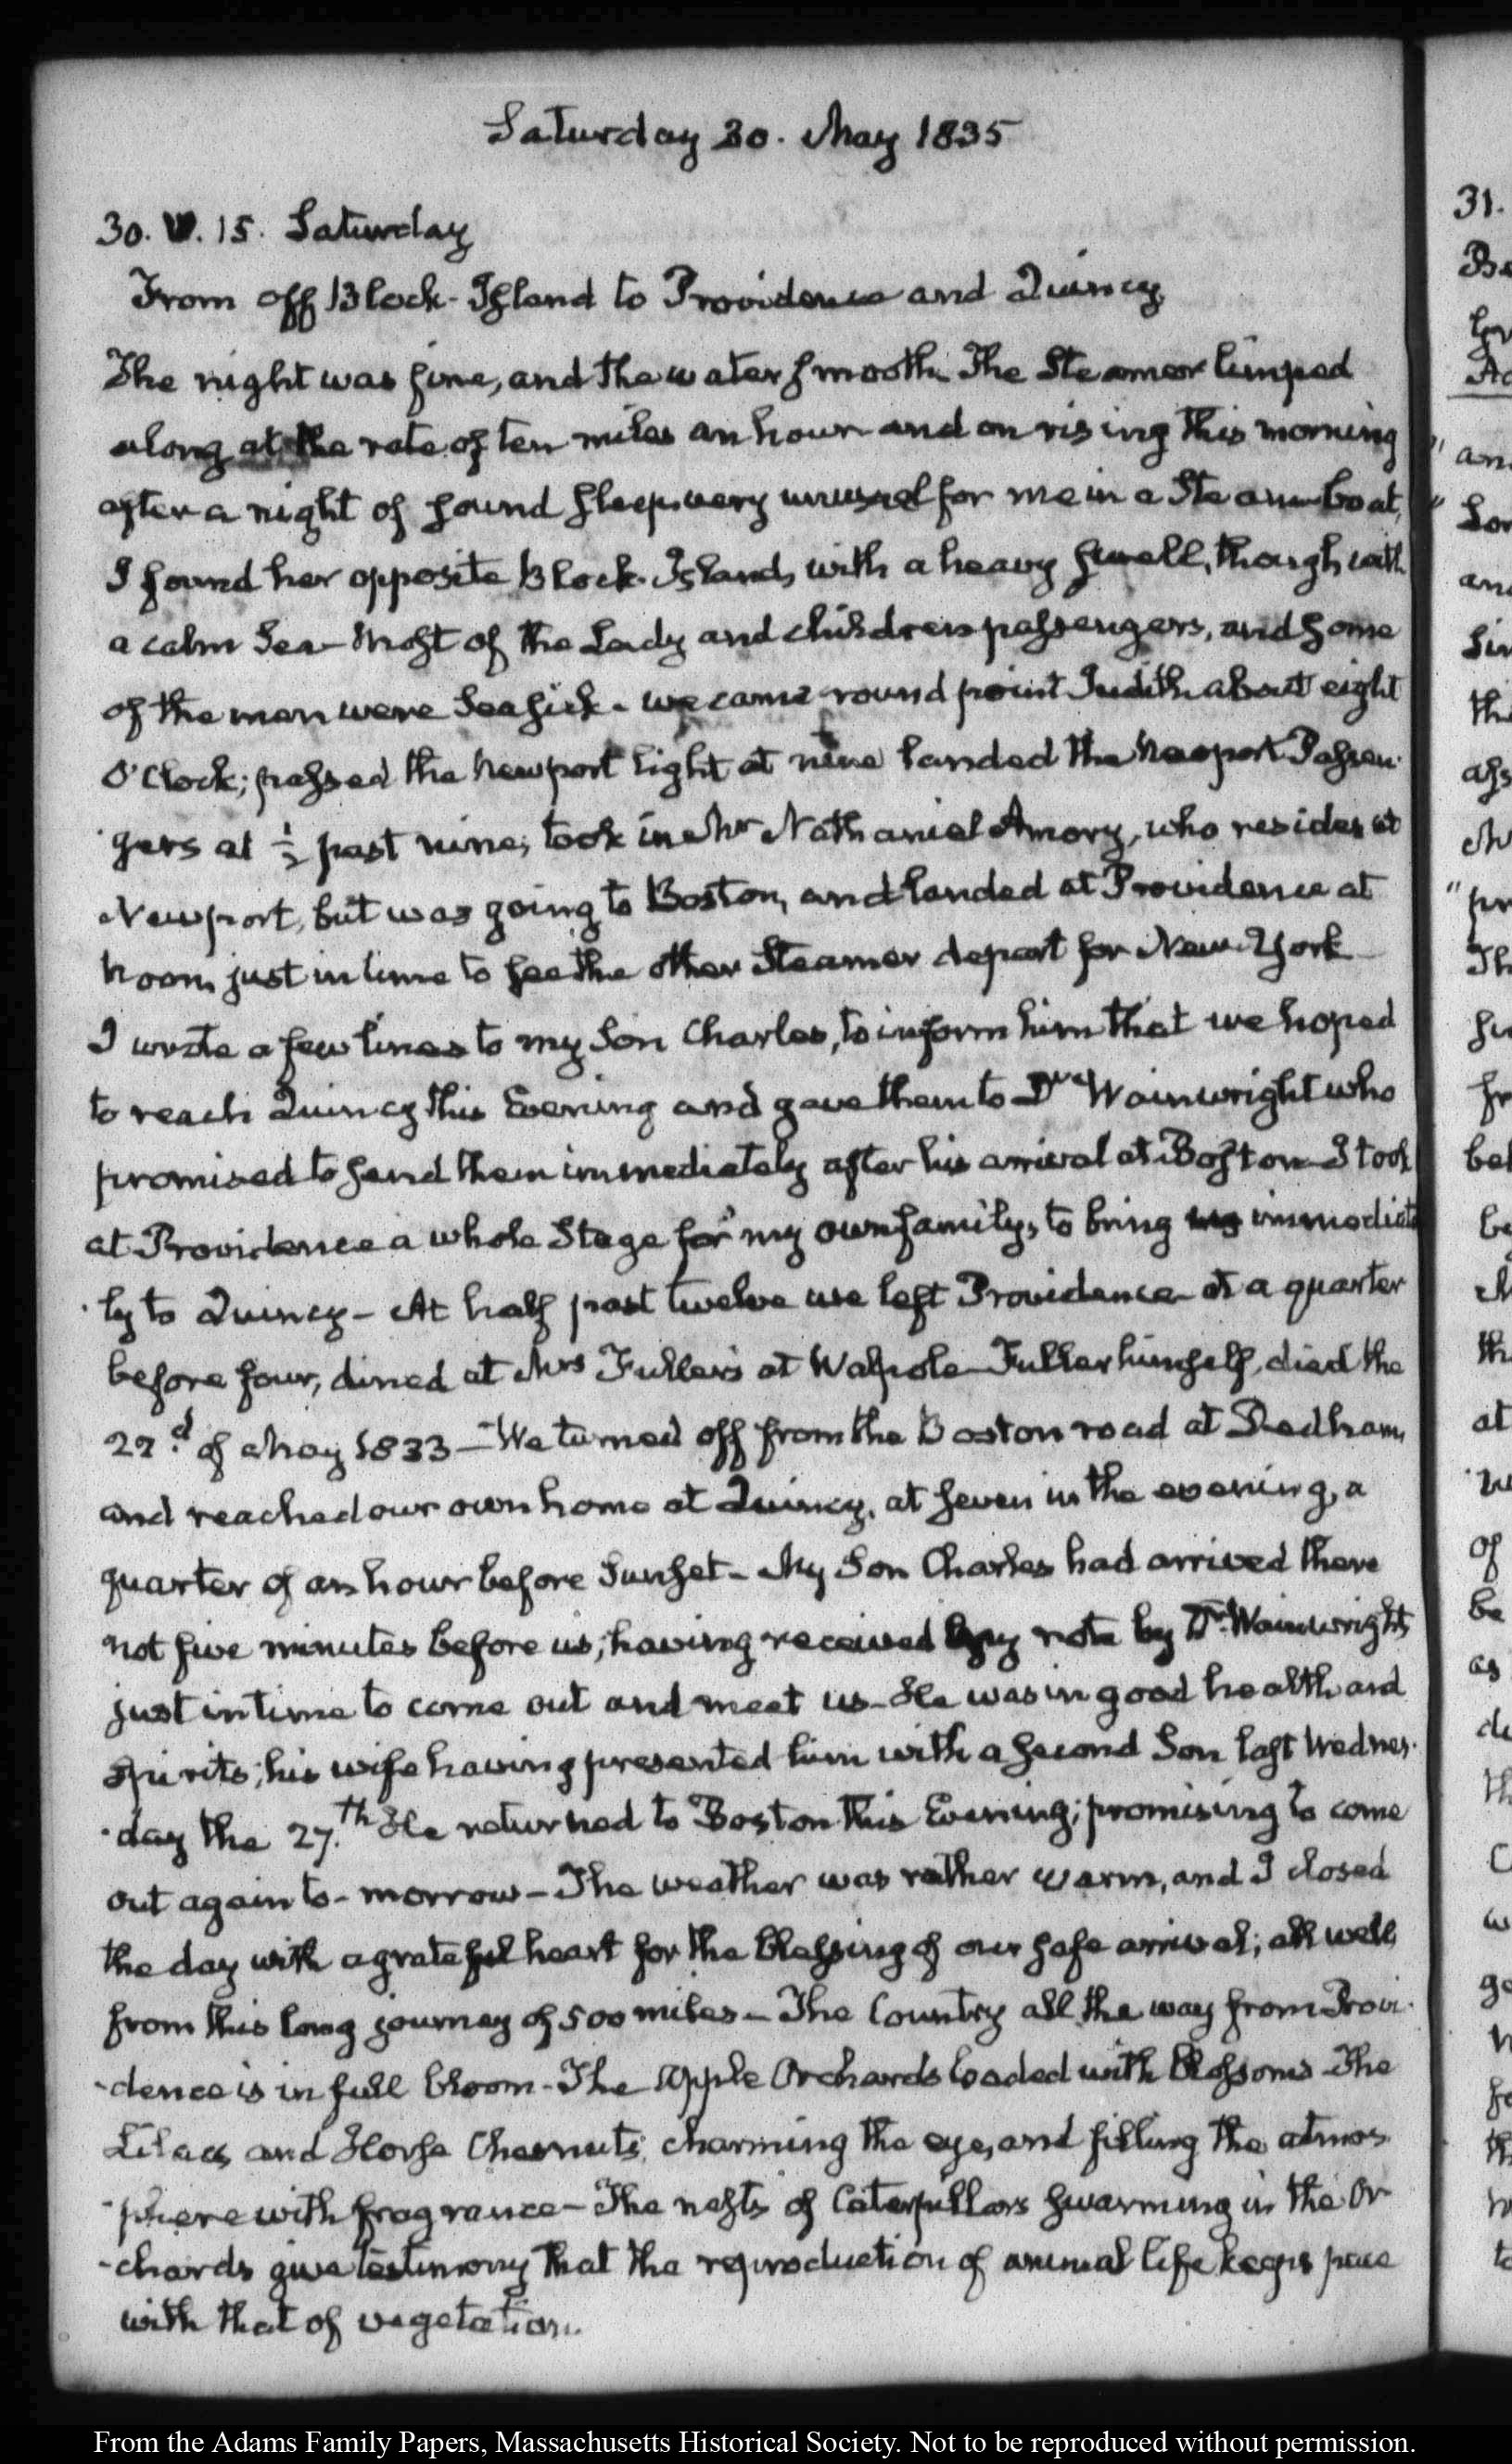 Saturday 30. May 1835
30. V. 15. Saturday
From off Block-Island to Providence and Quincy
The night was fine, and the water smooth. The Steamer limped
along at the rate of ten miles an hour and on rising this morning
after a night of sound sleep, very unusual for me in a Steam-boat,
I found her opposite Block-Island, with a heavy swell, though with
a calm Sea - Most of the Lady and children passengers, and some
of the men were Seasick - we came round point Judith about eight
O'Clock; passed the Newport light at nine landed the Newport Passen-
gers at ½ past nine; took in Mr Nathaniel Amory, who resides at
Newport, but was going to Boston, and landed at Providence at
Noon, just in time to see the other Steamer depart for New-York
I wrote a few lines to my Son Charles, to inform him that we hoped
to reach Quincy this Evening and gave them to Dr Wainwright who
promised to send them immediately after his arrival at Boston - I took
at Providence a whole Stage for my own family, to bring us immediate
ly to Quincy - At half past twelve we left Providence - at a quarter
before four, dined at Mrs Fuller's at Walpole - Fuller himself, died the
22.d of May 1833 - We turned off from the Boston road at Dedham,
and reached our own home at Quincy, at seven in the evening, a
quarter of an hour before Sunset - My Son Charles had arrived there
not five minutes before us; having received my note by Dr. Wainwright
just in time to come out and meet us - He was in good health and
Spirits; his wife having presented him with a second Son last Wednes-
day the 27.th He returned to Boston this Evening; promising to come
out again to-morrow - The weather was rather warm, and I closed
the day with a grateful heart for the blessing of our safe arrival; all well
from this long journey of 500 miles - The Country all the way from Provi-
dence is in full bloom - The Apple Orchards loaded with Blossoms - The
Lilacs and Horse Chesnuts, charming the eye, and filling the atmos
phere with fragrance - The nests of Caterpillars swarming in the Or
chards give testimony that the reproduction of animal life keeps pace
with that of vegetation.
31.
From the Adams Family Papers, Massachusetts Historical Society. Not to be reproduced without permission.